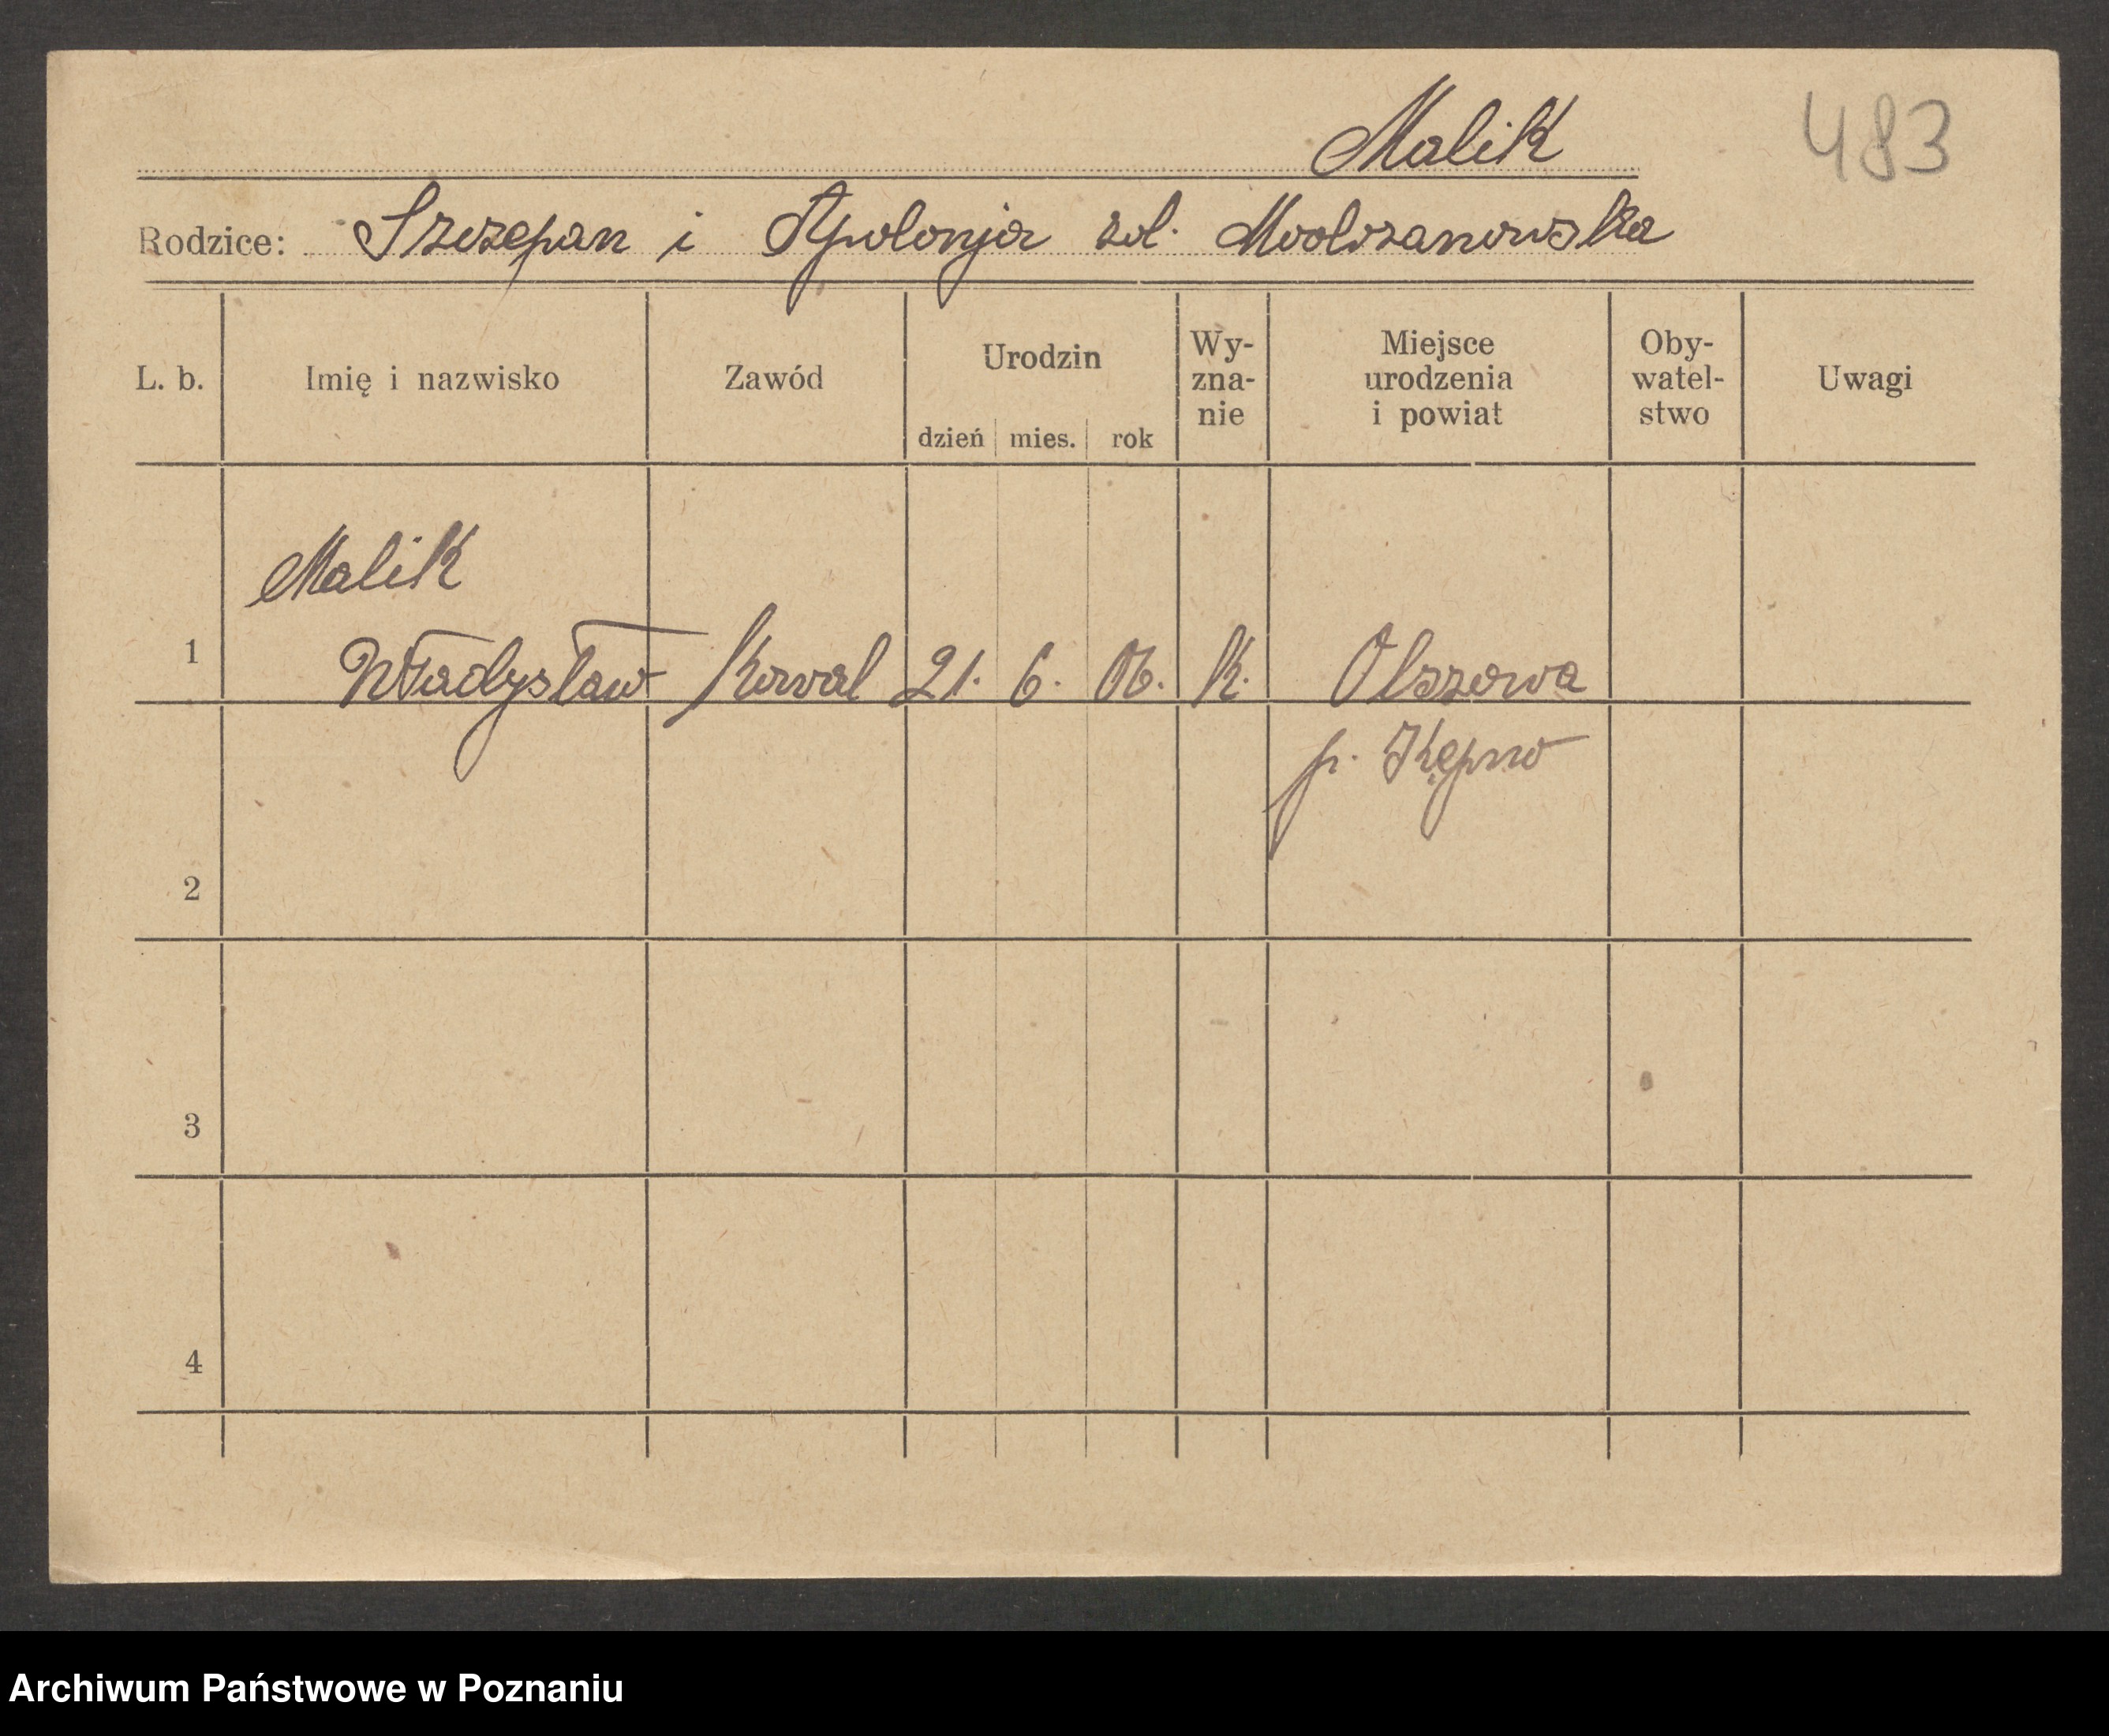 Malik 483
Rodzice: Szczepan i Apolonja zd.
L. b. Imię i nazwisko Zawód Urodzin dzień mies. rok Wy-zna-nie Miejsce urodzenia i powiat Oby-watel-stwo Uwagi
Malik
1 Władysław Kowal 21. 6. 06. K. Olszowa
p. Kępno
2
3
4
Archiwum Państwowe w Poznaniu